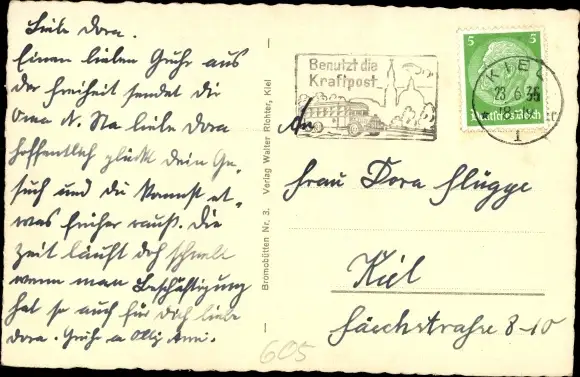 Liebe Dora.
Einen lieben Gruß aus
der Freiheit sendet die
Oma N. Na liebe Dora
hoffentlich glückt dein Ge-
such und du kommst et-
was früher raus. Die
Zeit läuft doch schnell
wenn man Beschäftigung
hat so auch für dich liebe
Dora. Gruß a
Benutzt die
Kraftpost
5 5
KIEL
23.6.
18-
Deutsches Reich
1
An
Frau Dora Flügge
Kiel
8-10
Bromobütten Nr. 3. Verlag Walter Richter, Kiel
605